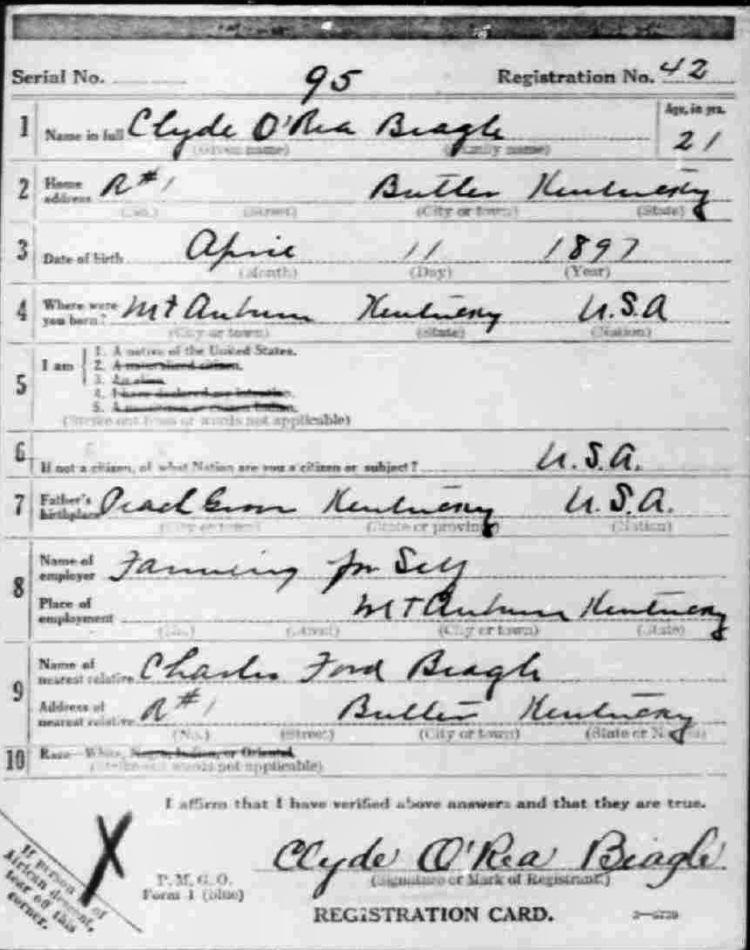 Serial No. 95 Registration No. 42
1 Name in full Clyde O'Rea Beagle Age, in yrs. 21
(Given name) (Family name)
2 Home address R#1 Butler Kentucky
(No.) (Street) (City or town) (State)
3 Date of birth April 11 1897
(Month) (Day) (Year)
4 Where were you born? Mt Auburn Kentucky U.S.A
(City or town) (State) (Nation)
5 I am
1. A native of the United States.
2. A naturalized citizen.
3. An alien.
4. I have declared my intention.
5. A
(Strike out lines or words not applicable)
6 If not a citizen, of what Nation are you a citizen or subject? U.S.A.
7 Father's birthplace Peach Grove Kentucky U.S.A.
(City or town) (State or province) (Nation)
8 Name of employer Farming for Self
Place of employment Mt Auburn Kentucky
(No.) (Street) (City or town) (State)
9 Name of nearest relative Charles Ford Beagle
Address of nearest relative R#1 Butler Kentucky
(No.) (Street) (City or town) (State or Nation)
10 Race—White, Negro, Indian, or Oriental
(Strike out words not applicable)
I affirm that I have verified above answers and that they are true.
X
If person is of African descent, tear off this corner.
P. M. G. O.
Form 1 (blue)
Clyde O'Rea Beagle
(Signature or Mark of Registrant)
REGISTRATION CARD.